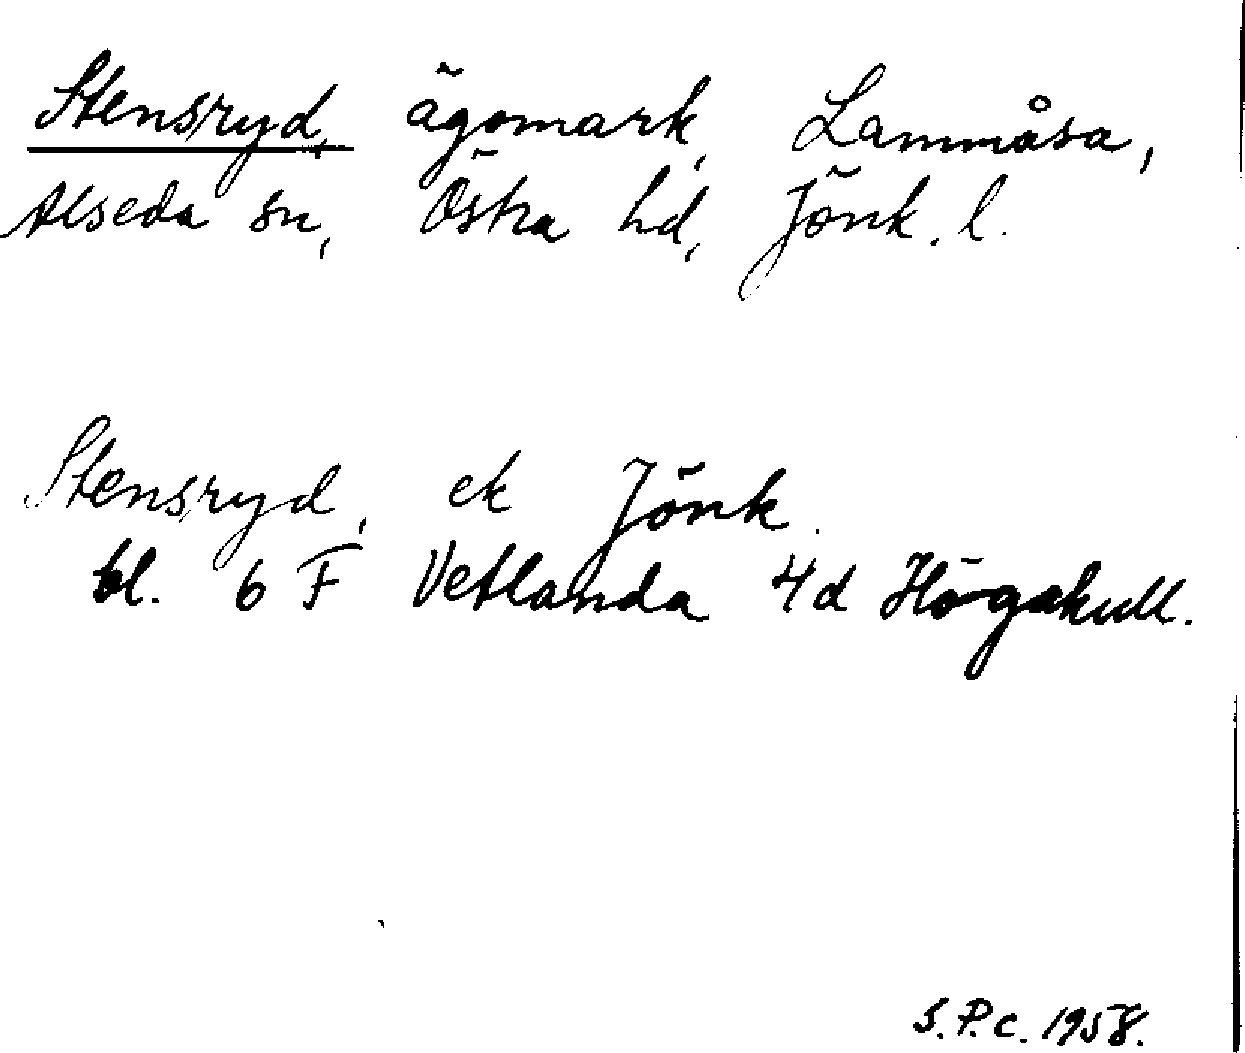 Stensryd, ägomark, Lammåsa,
Alseda sn, Östra hd, Jönk. l.
Stensryd, ek Jönk.
bl. 6 F Vetlanda 4d Högakull.
S.P.C. 1958.